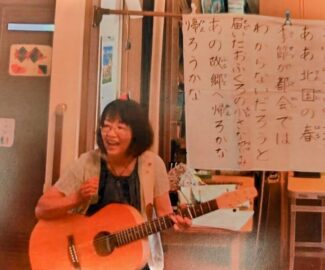 ああ北国の春
季節が都会では
わからないだろうと
届いたおふくろの小さな包み
あの故郷へ帰ろうかな
帰ろうかな